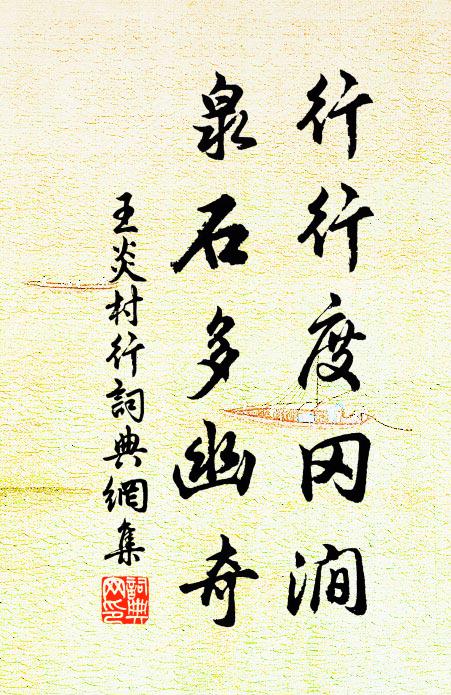 行行度冈涧
泉石多幽奇
王炎村行詞典網集
詞典
网印